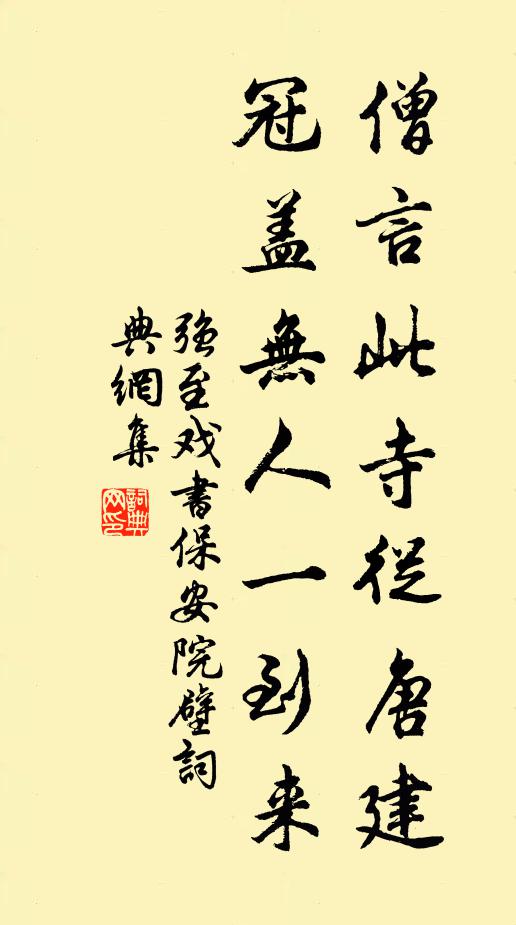 僧言此寺從唐建
冠盖無人一到来
強至戏書保安院壁詞
典網集
詞典
网印